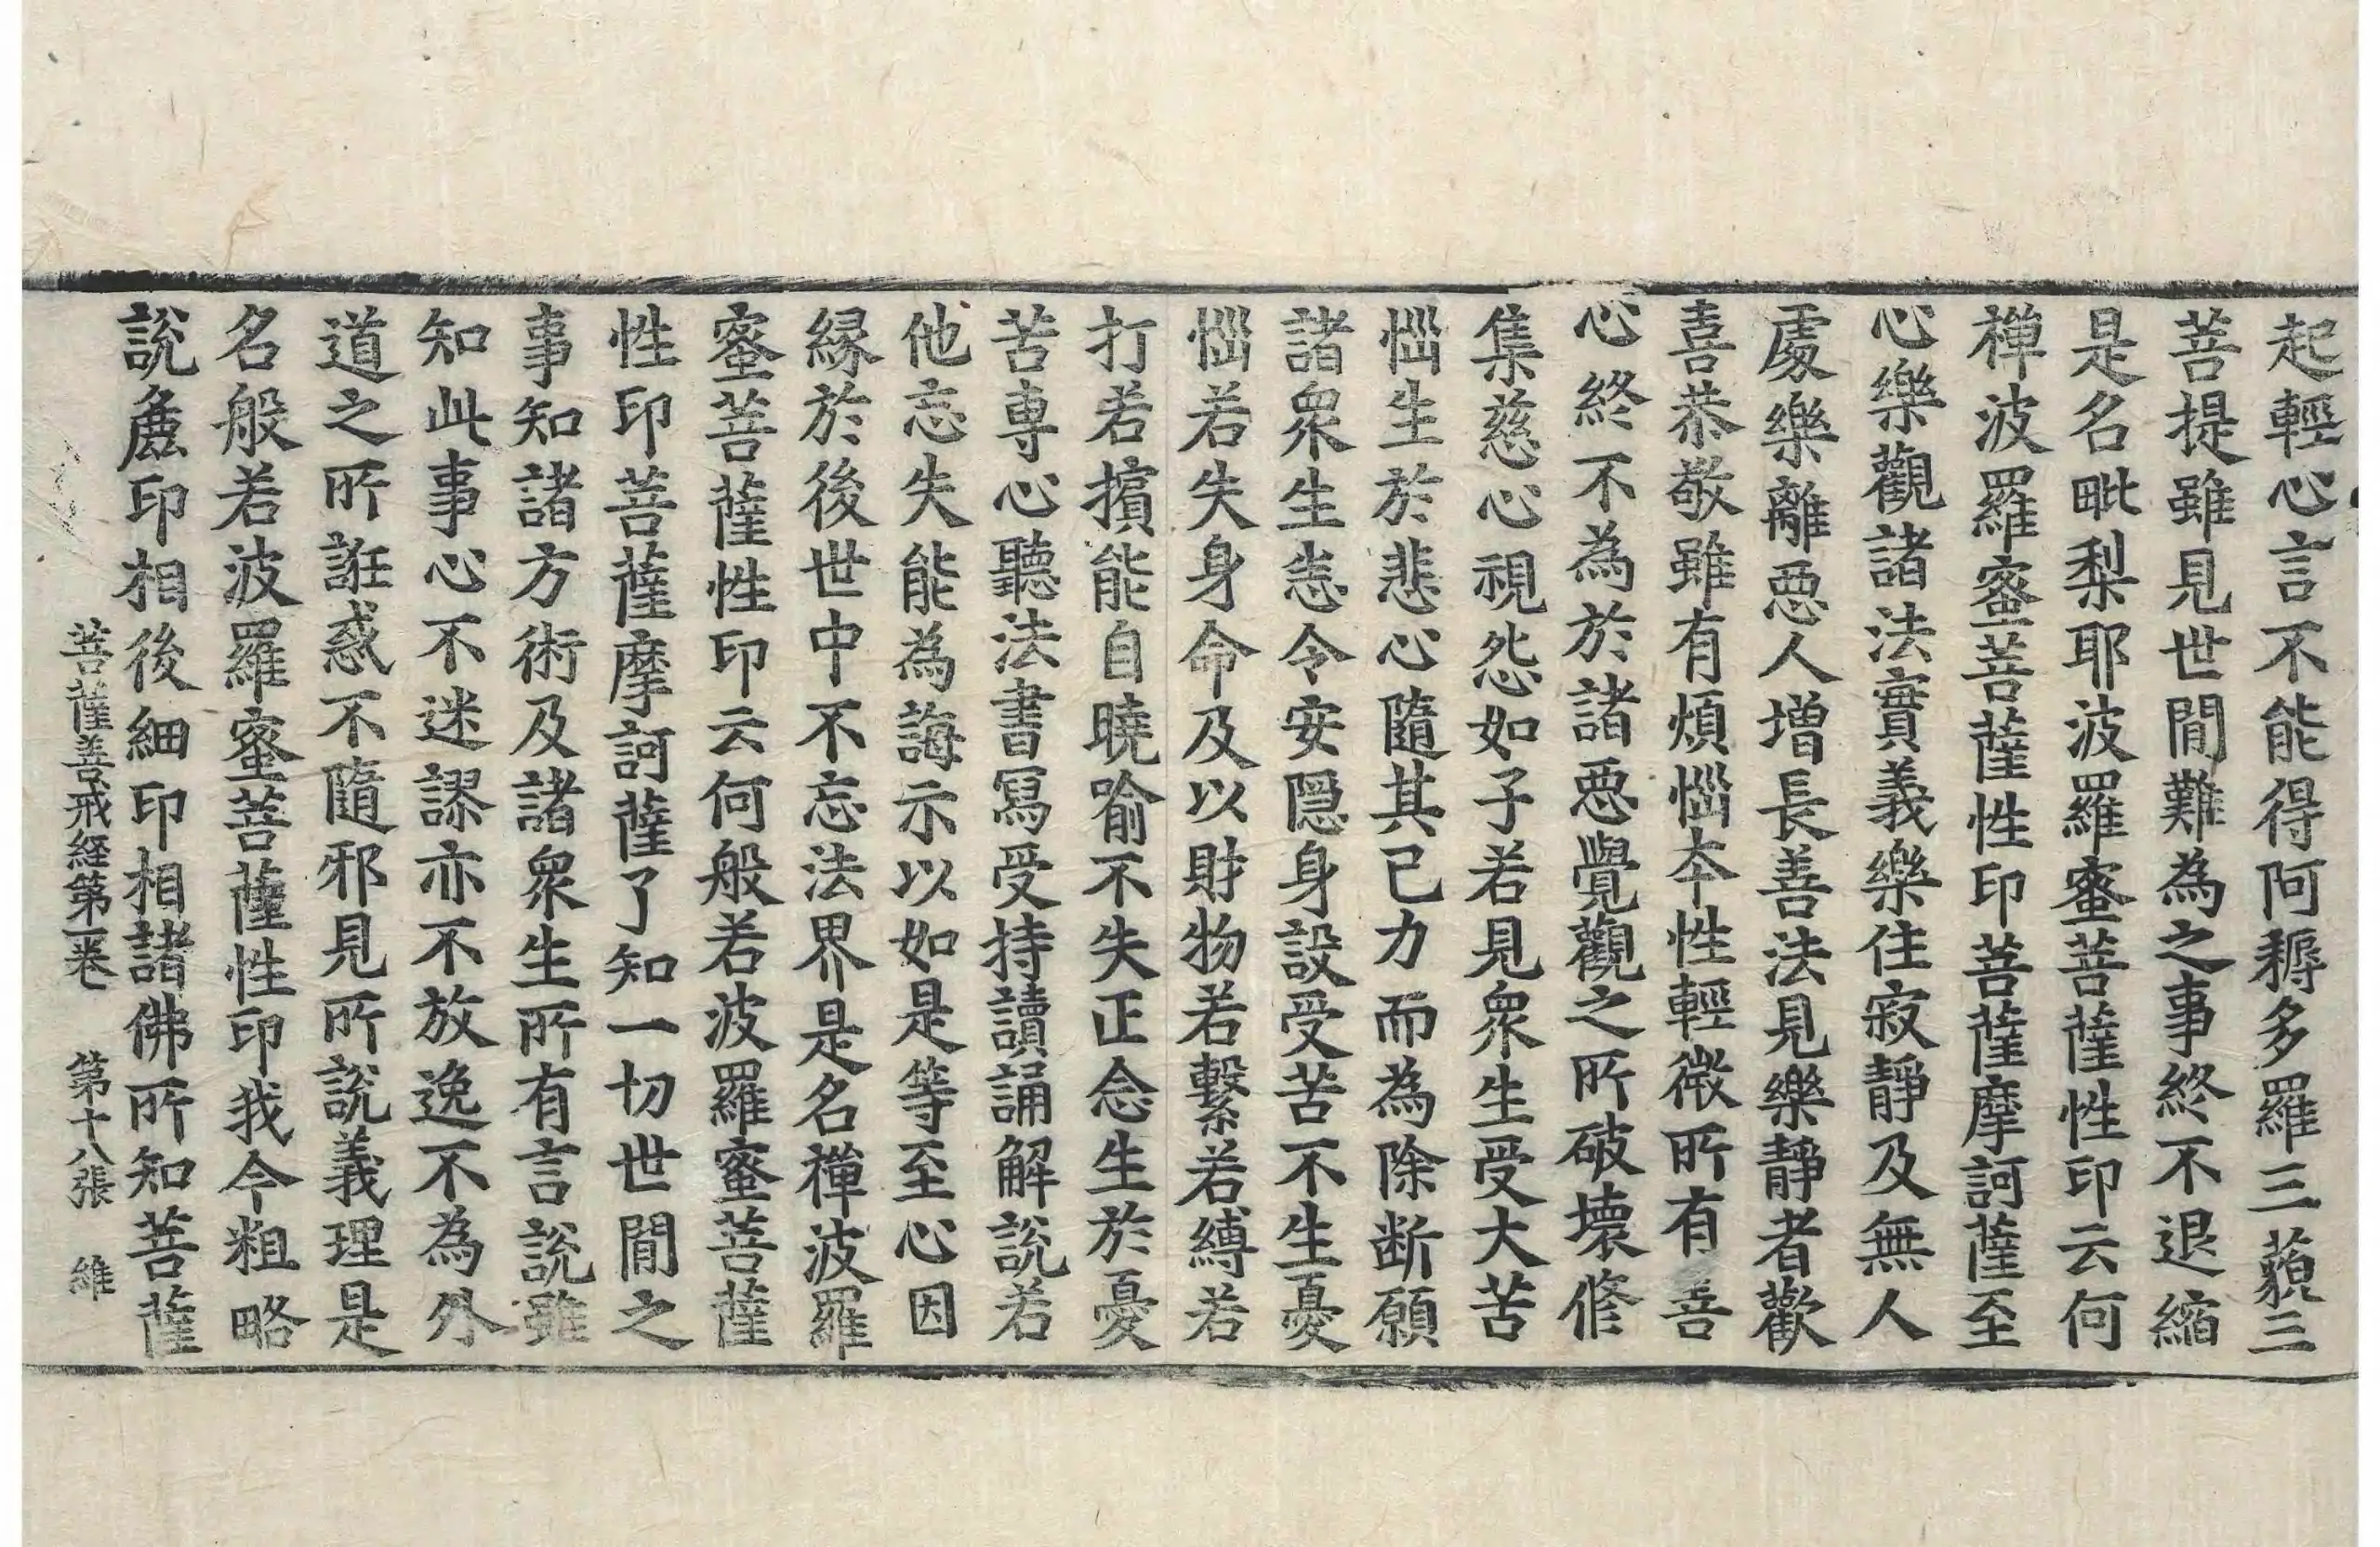 起輕心言不能得阿耨多羅三藐三
菩提雖見世間難為之事終不退縮
是名毗梨耶波羅蜜菩薩性印云何
禪波羅蜜菩薩性印菩薩摩訶薩至
心樂觀諸法實義樂住寂靜及無人
處樂離惡人增長善法見樂靜者歡
喜恭敬雖有煩惱本性輕微所有善
心終不為於諸惡覺觀之所破壞修
集慈心視怨如子若見衆生受大苦
惱生於悲心隨其已力而為除断願
諸衆生悉令安隱身設受苦不生憂
惱若失身命及以財物若繫若縛若
打若擯能自曉喻不失正念生於憂
苦專心聽法書寫受持讀誦解說若
他忘失能為誨示以如是等至心因
緣於後世中不忘法界是名禪波羅
蜜菩薩性印云何般若波羅蜜菩薩
性印菩薩摩訶薩了知一切世間之
事知諸方術及諸衆生所有言說雖
知此事心不迷謬亦不放逸不為外
道之所誑惑不隨邪見所說義理是
名般若波羅蜜菩薩性印我今粗略
說麁印相後細印相諸佛所知菩薩
菩薩善戒経第一卷 第十八張 維